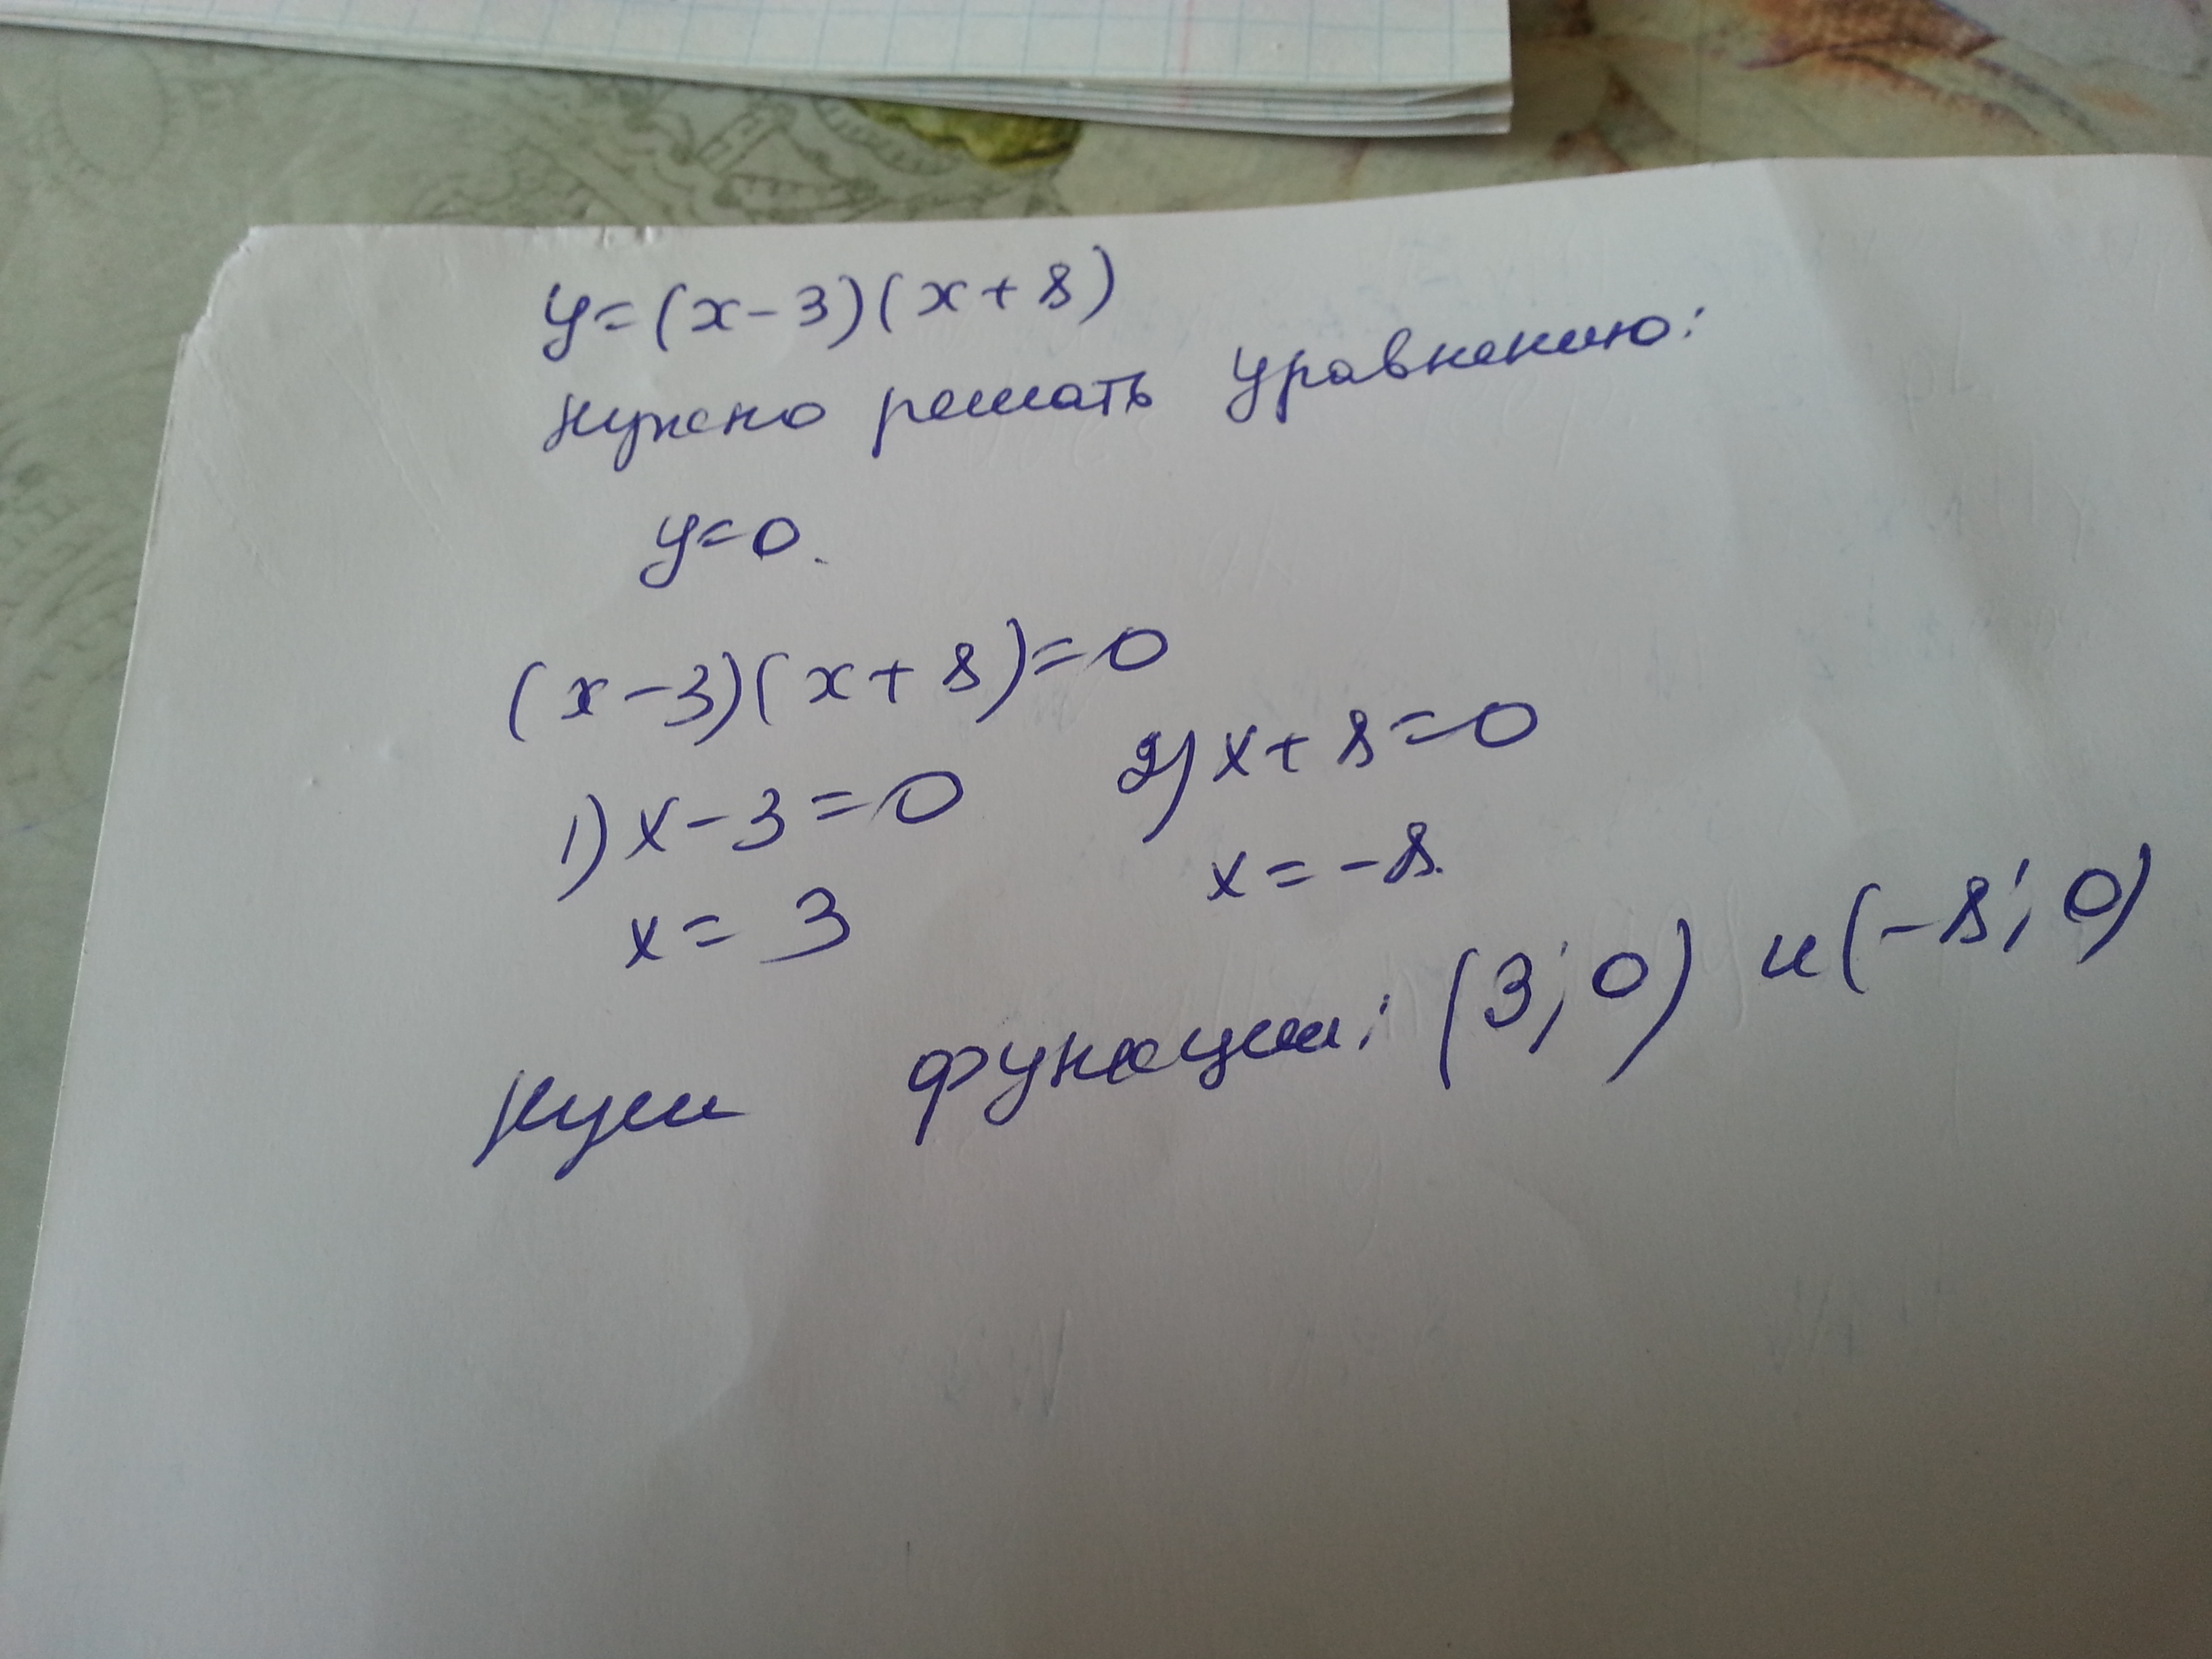 y=(x-3)(x+8)
нужно решать уравнению:
y=0.
(x-3)(x+8)=0
1) x-3=0 2) x+8=0
x=3 x=-8.
нули функции: (3;0) и (-8;0)